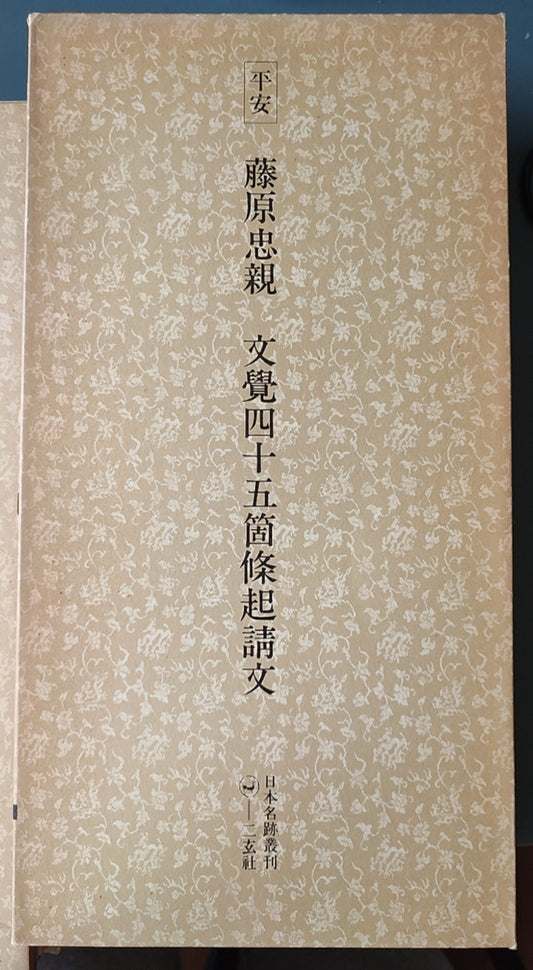 平安
藤原忠親　文覺四十五箇條起請文
日本名跡叢刊
二玄社